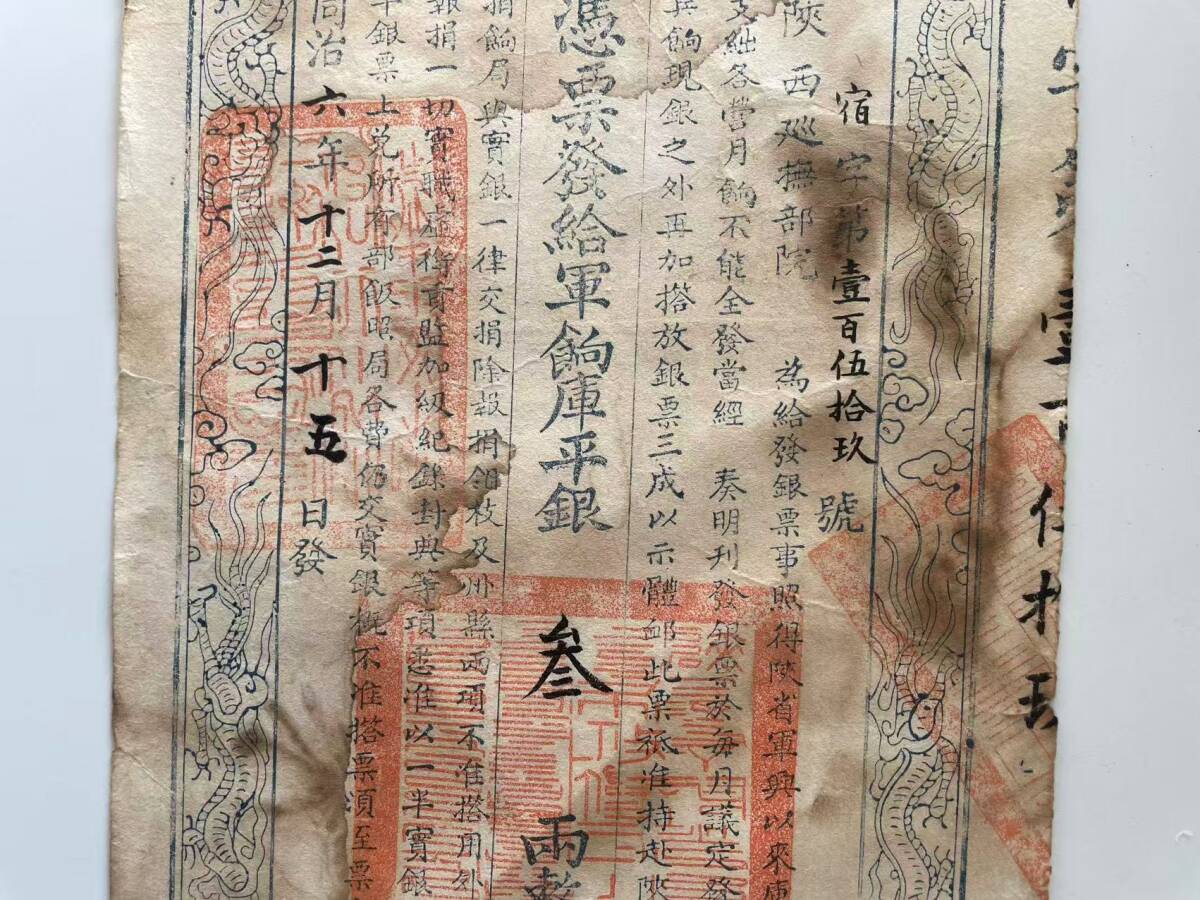 壹百伍拾玖
宿字第壹百伍拾玖號
陝西廵撫部院　為給發銀票事照得陝省軍興以來庫
支絀各營月餉不能全發當經　奏明刊發銀票於每月議定發
兵餉現銀之外再加搭放銀票三成以示體卹此票祇准持赴陝
憑票發給軍餉庫平銀叁兩整
捐餉局與實銀一律交捐除報捐翎枝及州縣兩項不准搭用外
報捐一切實職虛銜貢監加級紀錄封典等項悉准以一半實銀
半銀票上兌所有部飯照局各費仍交實銀概不准搭票須至票
同治六年十二月十五日發